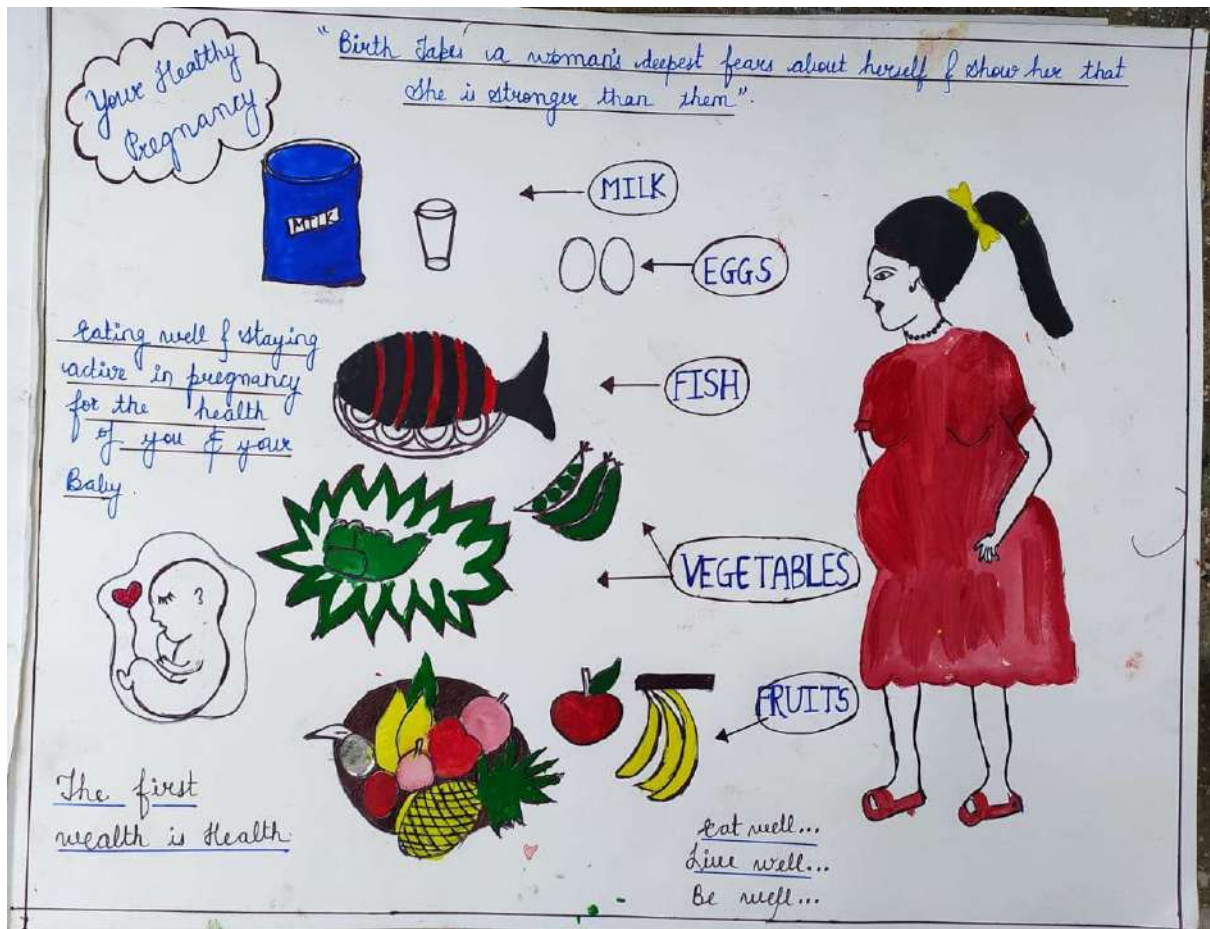 Your Healthy
Pregnancy
"Birth takes a woman's deepest fears about herself & show her that
she is stronger than them".
MILK
MILK
EGGS
Eating well & staying
active in pregnancy
for the health
of you & your
Baby
FISH
VEGETABLES
FRUITS
The first
wealth is Health
Eat well...
Live well...
Be well...